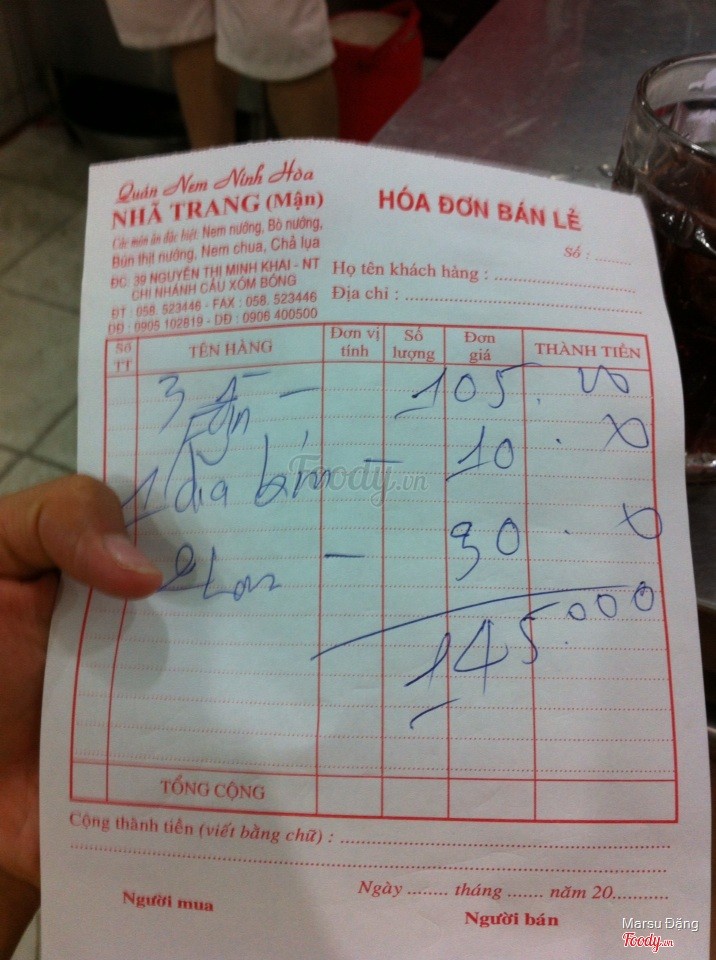 Quán Nem Ninh Hòa
NHÃ TRANG (Mận)
Các món ăn đặc biệt: Nem nướng, Bò nướng,
Bún thịt nướng, Nem chua, Chả lụa
ĐC: 39 NGUYỄN THỊ MINH KHAI - NT
CHI NHÁNH CẦU XÓM BÓNG
ĐT : 058. 523446 - FAX : 058. 523446
DĐ : 0905 102819 - DĐ : 0906 400500
HÓA ĐƠN BÁN LẺ
Số : ........
Họ tên khách hàng : ........................
Địa chỉ : ........................................
Số TT TÊN HÀNG Đơn vị tính Số lượng Đơn giá THÀNH TIỀN
3 - 105.
1 dĩa bún - 10.
2 lon - 30.
145.000
TỔNG CỘNG
Cộng thành tiền (viết bằng chữ) : ........................
Ngày ........ tháng ....... năm 20...........
Người mua
Người bán
Foody.vn
Marsu Đăng
Foody.vn